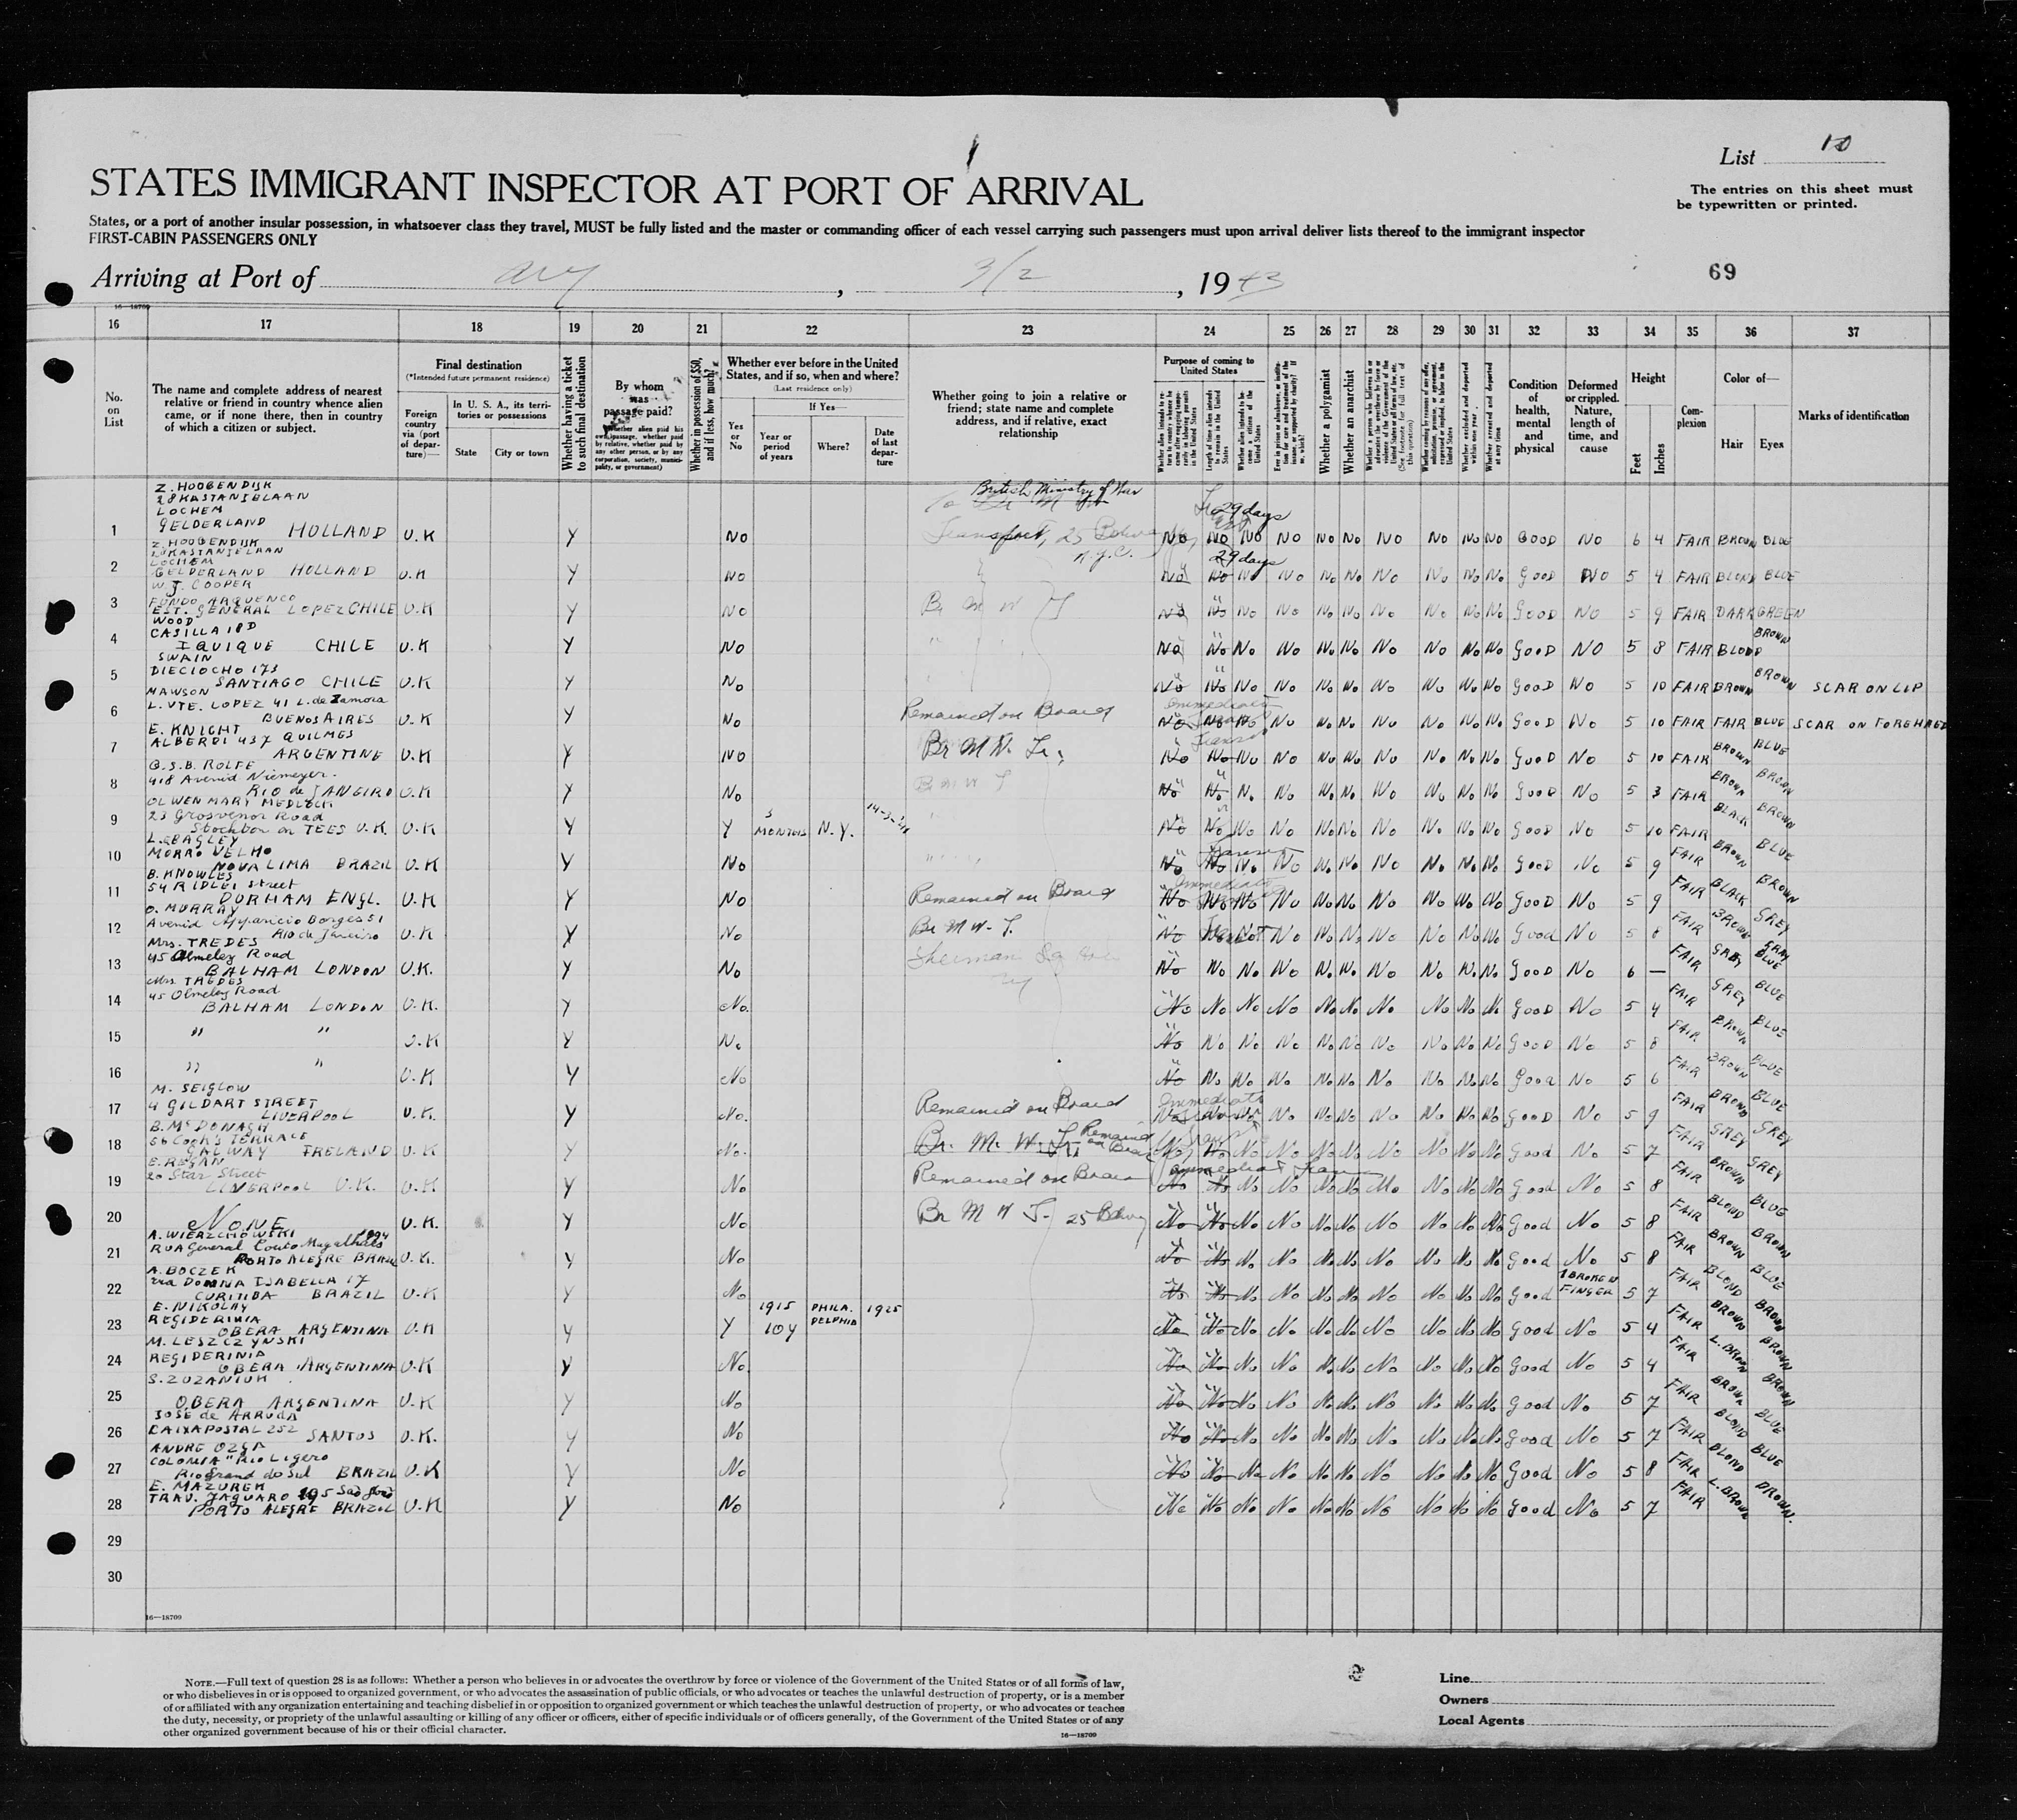 List 10
STATES IMMIGRANT INSPECTOR AT PORT OF ARRIVAL
The entries on this sheet must
be typewritten or printed.
States, or a port of another insular possession, in whatsoever class they travel, MUST be fully listed and the master or commanding officer of each vessel carrying such passengers must upon arrival deliver lists thereof to the immigrant inspector
FIRST-CABIN PASSENGERS ONLY
Arriving at Port of , 3/2 , 1943
69
16—18709
16 17 18 19 20 21 22 23 24 25 26 27 28 29 30 31 32 33 34 35 36 37
No. on List
The name and complete address of nearest relative or friend in country whence alien came, or if none there, then in country of which a citizen or subject.
Final destination
(*Intended future permanent residence)
Foreign country via (port of departure)—
In U. S. A., its territories or possessions
State
City or town
Whether having a ticket to such final destination
By whom was passage paid?
Whether in possession of $50, and if less, how much?
Whether ever before in the United States, and if so, when and where?
(Last residence only)
Yes or No
If Yes—
Year or period of years
Where?
Date of last departure
Whether going to join a relative or friend; state name and complete address, and if relative, exact relationship
Purpose of coming to United States
Whether a polygamist
Whether an anarchist
Condition of health, mental and physical
Deformed or crippled. Nature, length of time, and cause
Height
Feet
Inches
Complexion
Color of—
Hair
Eyes
Marks of identification
Z. HOOGENDIJK
28 KASTANJELAAN
LOCHEM
British Ministry of War
29 days
1 GELDERLAND HOLLAND U.K Y NO Transport, 25 N.Y.C. NO NO NO NO NO NO NO NO NO NO GOOD NO 6 4 FAIR BROWN BLUE
Z. HOOGENDIJK
28 KASTANJELAAN
LOCHEM
29 days
2 GELDERLAND HOLLAND U.K Y NO No No No No No No No No No No Good NO 5 4 FAIR BLOND BLUE
W. J. COOPER
FUNDO ARQUENCO
3 EST. GENERAL LOPEZ CHILE U.K Y NO Br M W T No " No No No No No No No No Good NO 5 9 FAIR DARK GREEN
WOOD
CASILLA 18D
4 IQUIQUE CHILE U.K Y NO " No No No No No No No No No No Good NO 5 8 FAIR BLOND BROWN
SWAIN
DIECIOCHO 173
5 SANTIAGO CHILE U.K Y No No No No No No No No No No No Good No 5 10 FAIR BROWN BROWN SCAR ON LIP
MAWSON
L. VTE. LOPEZ 41 L. de Zamora
6 BUENOS AIRES U.K Y No Remained on Board No No No No No No No No No No Good No 5 10 FAIR FAIR BLUE SCAR ON FOREHAED
E. KNIGHT
ALBERDI 437 QUILMES
7 ARGENTINE U.K Y NO Br M W. Tr. No No No No No No No No No No Good No 5 10 FAIR BROWN BLUE
G.S.B. ROLFE
418 Avenid Niemeyer.
8 RIO de JANEIRO U.K Y No Br M W T No No No No No No No No No No Good No 5 3 FAIR BROWN BROWN
OLWEN MARY MEDLOCK
23 Grosvenor Road
9 Stockton on TEES U.K. U.K Y Y 3 MONTHS N.Y. No No No No No No No No No No Good No 5 10 FAIR BLACK BROWN
L. BAGLEY
MORRO VELHO
10 NOVA LIMA BRAZIL U.K Y No No No No No No No No No No No Good No 5 9 FAIR BROWN BLUE
B. KNOWLES
54 RIDLEY Street
11 DURHAM ENGL. U.K Y No Remained on Board No No No No No No No No No No Good No 5 9 FAIR BLACK BROWN
O. MURRAY
Avenid Apparicio Borges 51
12 Rio de Janeiro U.K Y No Br M W. T. No Transit No No No No No No No Good No 5 8 FAIR BROWN GREY
Mrs. TREDES
45 Olmeley Road
13 BALHAM LONDON U.K. Y No No No No No No No No No No No Good No 6 — FAIR GREY GRAY BLUE
Mrs. TREDES
45 Olmeley Road
14 BALHAM LONDON U.K. Y No. No No No No No No No No No No Good No 5 4 FAIR GREY BLUE
15 " " U.K Y No No No No No No No No No No No Good No 5 8 FAIR BROWN BLUE
16 " " U.K Y No No No No No No No No No No No Good No 5 6 FAIR BROWN BLUE
M. SEIGLOW
4 GILDART STREET
17 LIVERPOOL U.K. Y No. Remained on Board No No No No No No No No No No Good No 5 9 FAIR BROWN BLUE
B. McDONAGH
66 Cook's TERRACE
18 GALWAY IRELAND U.K Y No. Br. M. W. Tr Remained on Board No No No No No No No No No No Good No 5 7 FAIR GREY GREY
E. REGAN
20 Star Street
19 LIVERPOOL U.K. U.K Y No Remained on Board No No No No No No No No No No Good No 5 8 FAIR BROWN GREY
20 NONE U.K. Y No Br M W T- 25 No No No No No No No No No No Good No 5 8 FAIR BLOND BLUE
A. WIERZCHOWSKI
RUA General Couto Magalhaes
21 PORTO ALEGRE BRAZIL U.K. Y No No No No No No No No No No No Good No 5 8 FAIR BROWN BROWN
A. BOCZEK
rua DONNA ISABELLA 17
22 CURITIBA BRAZIL U.K Y No No No No No No No No No No No Good 1 BROKEN FINGER 5 7 FAIR BLOND BLUE
E. NIKOLAY
REGIDERINIA
23 OBERA ARGENTINA U.K Y Y 1915 10Y PHILADELPHIA 1925 No No No No No No No No No No Good No 5 4 FAIR BROWN BROWN
M. LESZCZYNSKI
REGIDERINIA
24 OBERA ARGENTINA U.K Y No. No No No No No No No No No No Good No 5 4 FAIR L. BROWN BROWN
S. ZUZANIUK
25 OBERA ARGENTINA U.K Y No No No No No No No No No No No Good No 5 7 FAIR BROWN BROWN
JOSÉ de ARRUDA
26 CAIXA POSTAL 252 SANTOS U.K. Y No No No No No No No No No No No Good No 5 7 FAIR BLOND BLUE
ANDRE OZGA
COLONIA "Rio Ligero
27 Rio Grand do Sul BRAZIL U.K Y No No No No No No No No No No No Good No 5 8 FAIR BLOND BLUE
E. MAZUREK
TRAV. JAGUARO 195
28 PORTO ALEGRE BRAZIL U.K Y No No No No No No No No No No No Good No 5 7 FAIR L. BROWN BROWN.
29
30
16—18709
NOTE.—Full text of question 28 is as follows: Whether a person who believes in or advocates the overthrow by force or violence of the Government of the United States or of all forms of law,
or who disbelieves in or is opposed to organized government, or who advocates the assassination of public officials, or who advocates or teaches the unlawful destruction of property, or is a member
of or affiliated with any organization entertaining and teaching disbelief in or opposition to organized government or which teaches the unlawful destruction of property, or who advocates or teaches
the duty, necessity, or propriety of the unlawful assaulting or killing of any officer or officers, either of specific individuals or of officers generally, of the Government of the United States or of any
other organized government because of his or their official character.
16—18709
Line
Owners
Local Agents